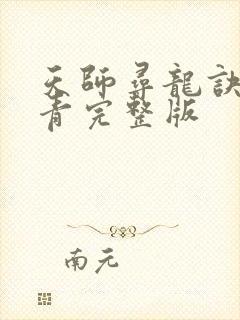 天師尋龍訣
青完整版
南元